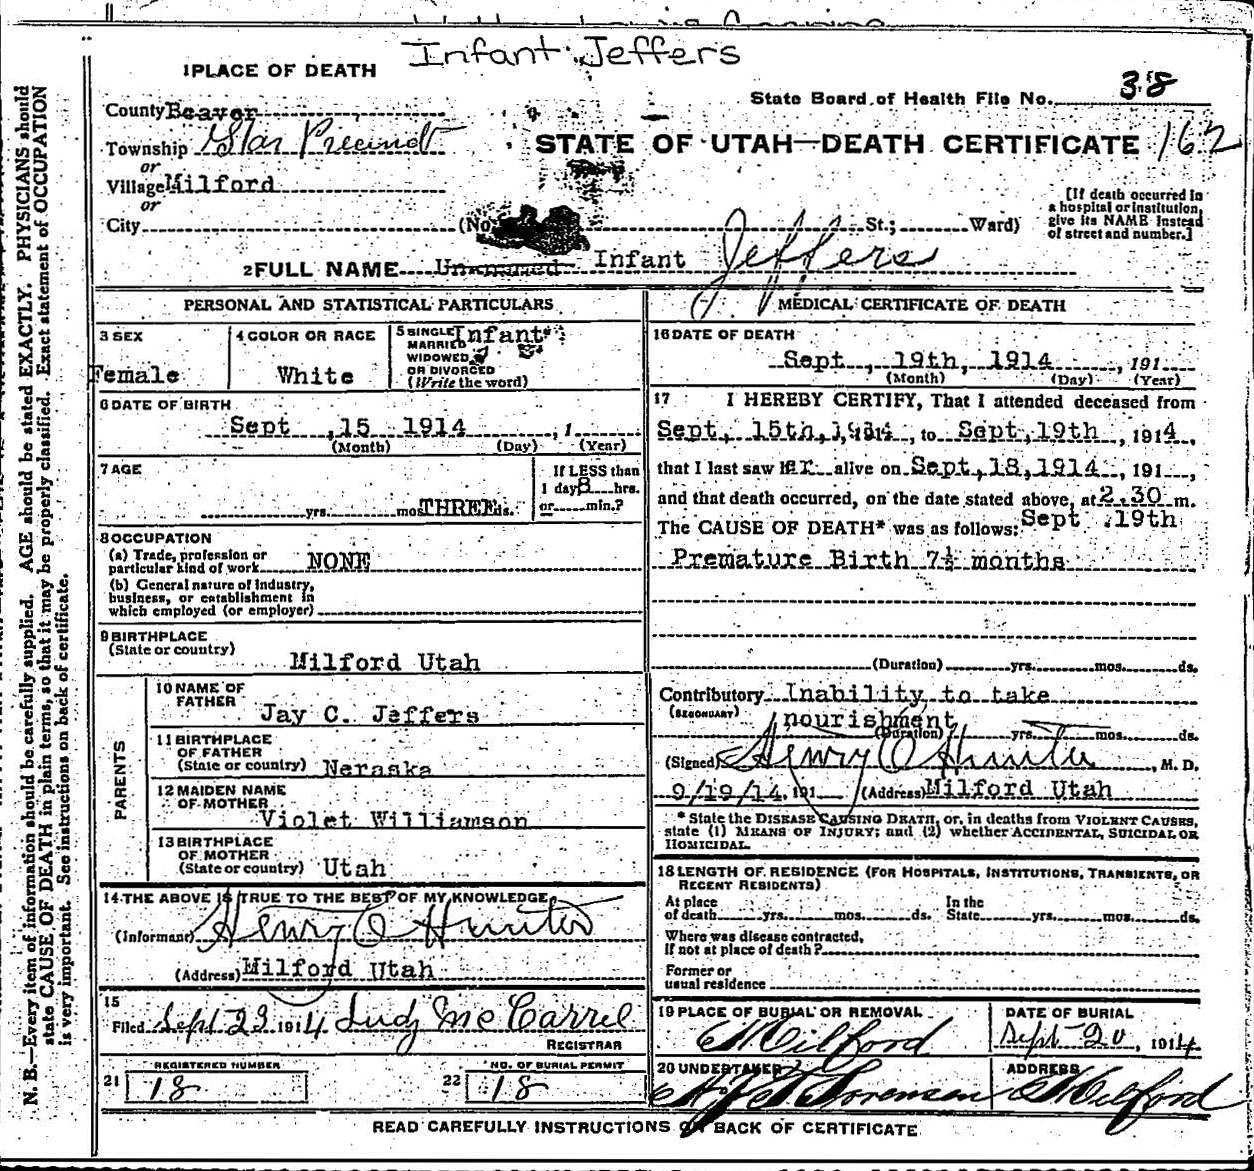 Infant Jeffers
1 PLACE OF DEATH
State Board of Health File No. 38
County Beaver
STATE OF UTAH—DEATH CERTIFICATE 162
Township Star Precinct
or
Village Milford
or
City (No St.; Ward)
[If death occurred in
a hospital or institution,
give its NAME instead
of street and number.]
2 FULL NAME Unknamed Infant Jeffers
PERSONAL AND STATISTICAL PARTICULARS
3 SEX
Female
4 COLOR OR RACE
White
5 SINGLE Infant
MARRIED
WIDOWED
OR DIVORCED
(Write the word)
6 DATE OF BIRTH
Sept , 15 1914 , 1
(Month) (Day) (Year)
7 AGE
yrs. mos. THREE ds.
If LESS than
1 day 8 hrs.
or min.?
8 OCCUPATION
(a) Trade, profession or
particular kind of work NONE
(b) General nature of industry,
business, or establishment in
which employed (or employer)
9 BIRTHPLACE
(State or country)
Milford Utah
PARENTS
10 NAME OF
FATHER
Jay C. Jeffers
11 BIRTHPLACE
OF FATHER
(State or country) Neraska
12 MAIDEN NAME
OF MOTHER
Violet Williamson
13 BIRTHPLACE
OF MOTHER
(State or country) Utah
14 THE ABOVE IS TRUE TO THE BEST OF MY KNOWLEDGE
(Informant) Henry O Hunter
(Address) Milford Utah
15
Filed Sept 23 1914 Judz McCarrel
REGISTRAR
REGISTERED NUMBER
21 18
NO. OF BURIAL PERMIT
22 18
MEDICAL CERTIFICATE OF DEATH
16 DATE OF DEATH
Sept , 19th, 1914 , 191
(Month) (Day) (Year)
17 I HEREBY CERTIFY, That I attended deceased from
Sept, 15th, 1914 , to Sept, 19th , 1914,
that I last saw her alive on Sept, 18, 1914 , 191 ,
and that death occurred, on the date stated above, at 2.30 m.
The CAUSE OF DEATH* was as follows: Sept .19th
Premature Birth 7½ months
(Duration) yrs. mos. ds.
Contributory Inability to take
(SECONDARY) nourishment
(Duration) yrs. mos. ds.
(Signed) Henry O Hunter , M. D.
9/19/14, 191 (Address) Milford Utah
* State the DISEASE CAUSING DEATH, or, in deaths from VIOLENT CAUSES,
state (1) MEANS OF INJURY; and (2) whether ACCIDENTAL, SUICIDAL OR
HOMICIDAL.
18 LENGTH OF RESIDENCE (FOR HOSPITALS, INSTITUTIONS, TRANSIENTS, OR
RECENT RESIDENTS)
At place
of death yrs. mos. ds.
In the
State yrs. mos. ds.
Where was disease contracted,
if not at place of death?
Former or
usual residence
19 PLACE OF BURIAL OR REMOVAL
Milford
DATE OF BURIAL
Sept 20, 1914
20 UNDERTAKER
Sorensen
ADDRESS
Milford
READ CAREFULLY INSTRUCTIONS ON BACK OF CERTIFICATE
N. B.—Every item of information should be carefully supplied. AGE should be stated EXACTLY. PHYSICIANS should
state CAUSE OF DEATH in plain terms, so that it may be properly classified. Exact statement of OCCUPATION
is very important. See instructions on back of certificate.